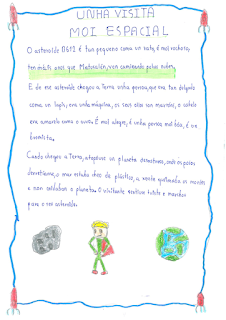 UNHA VISITA
MOI ESPACIAL
O asteroide B612 é tan pequeno como un rato, é moi rochoso,
ten máis anos que Matusalén, vai camiñando polas nubes.
E de ese asteroide chegou a Terra unha persoa, que era tan delgada
como un lapis, era unha máquina, os seus ollos son mouros, o cabelo
era amarelo como o ouro. É moi alegre, é unha persoa moi boa, é un
Cando chegou a Terra, atopouse un planeta desastroso, onde os polos
derretíanse, o mar estaba cheo de plástico, a xente queimaba os montes
e non coidaban o planeta. O visitante sentiuse triste e marchou
para o seu asteroide.